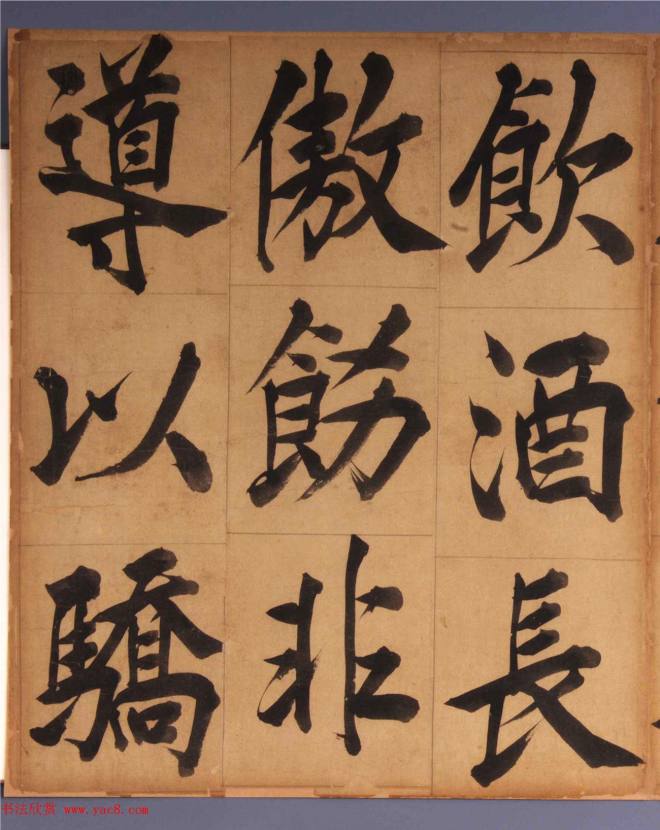 飲酒長
傲飭非
導以驕
书法欣赏 www.yac8.com